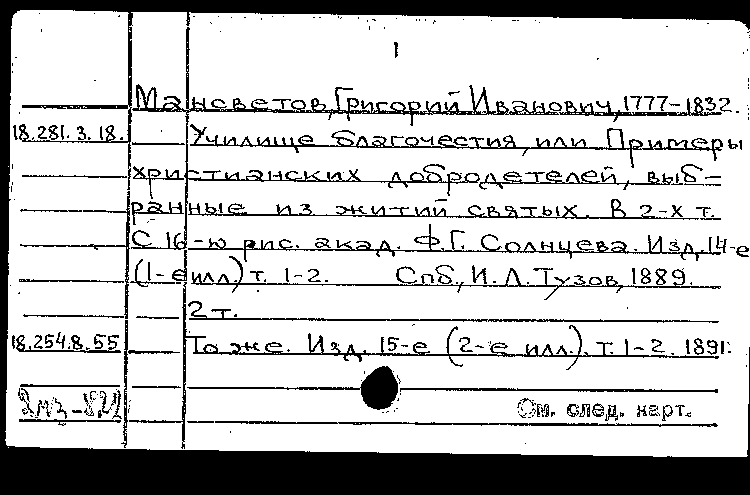 1
Мансветов, Григорий Иванович, 1777-1832.
18.281.3.18. Училище благочестия, или Примеры
христианских добродетелей, выб-
ранные из житий святых. В 2-х т.
С 16-ю рис. акад. Ф.Г. Солнцева. Изд. 14-е
(1-е илл.) т. 1-2. Спб., И.Л. Тузов, 1889.
2 т.
18.254.8.55 То же. Изд. 15-е (2-е илл.). т. 1-2. 1891.
См. след. карт.